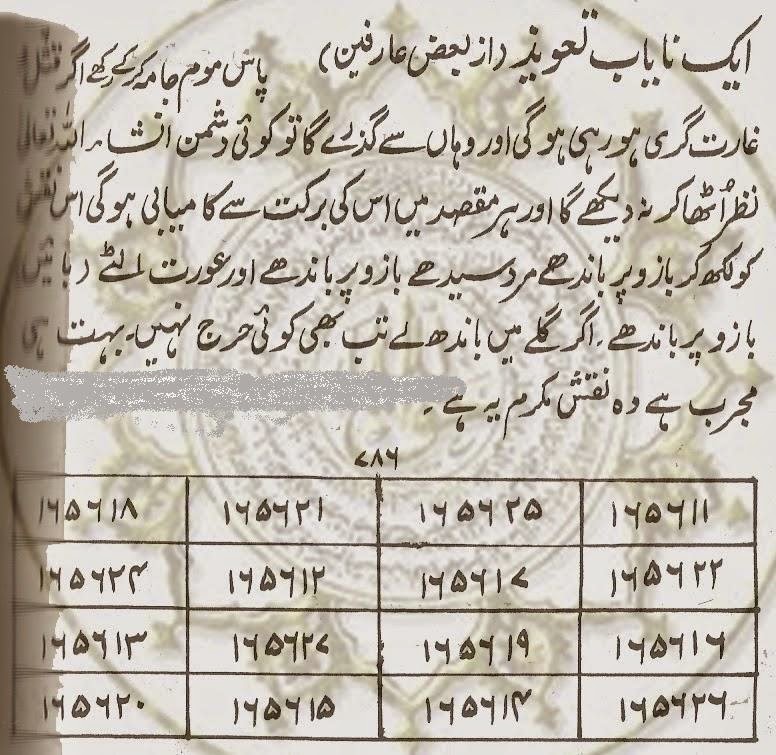 ایک نایاب تعویذ (از بعض عارفین) پاس موم جامہ کرکے رکھے اگر قتل
غارت گری ہو رہی ہوگی اور وہاں سے گذرے گا تو کوئی دشمن انشاء اللہ تعالیٰ
نظر اُٹھا کر نہ دیکھے گا اور ہر مقصد میں اس کی برکت سے کامیابی ہوگی اس نقش
کو لکھ کر بازو پر باندھے مرد سیدھے بازو پر باندھے اور عورت الٹے (بائیں
بازو پر باندھے۔ اگر گلے میں باندھ لے تب بھی کوئی حرج نہیں۔ بہت ہی
مجرب ہے وہ نقش مکرم یہ ہے۔
۷۸۶
۱۶۵۶۱۱ ۱۶۵۶۲۵ ۱۶۵۶۲۱ ۱۶۵۶۱۸
۱۶۵۶۲۲ ۱۶۵۶۱۷ ۱۶۵۶۱۲ ۱۶۵۶۲۴
۱۶۵۶۱۶ ۱۶۵۶۱۹ ۱۶۵۶۲۷ ۱۶۵۶۱۳
۱۶۵۶۲۶ ۱۶۵۶۱۴ ۱۶۵۶۱۵ ۱۶۵۶۲۰